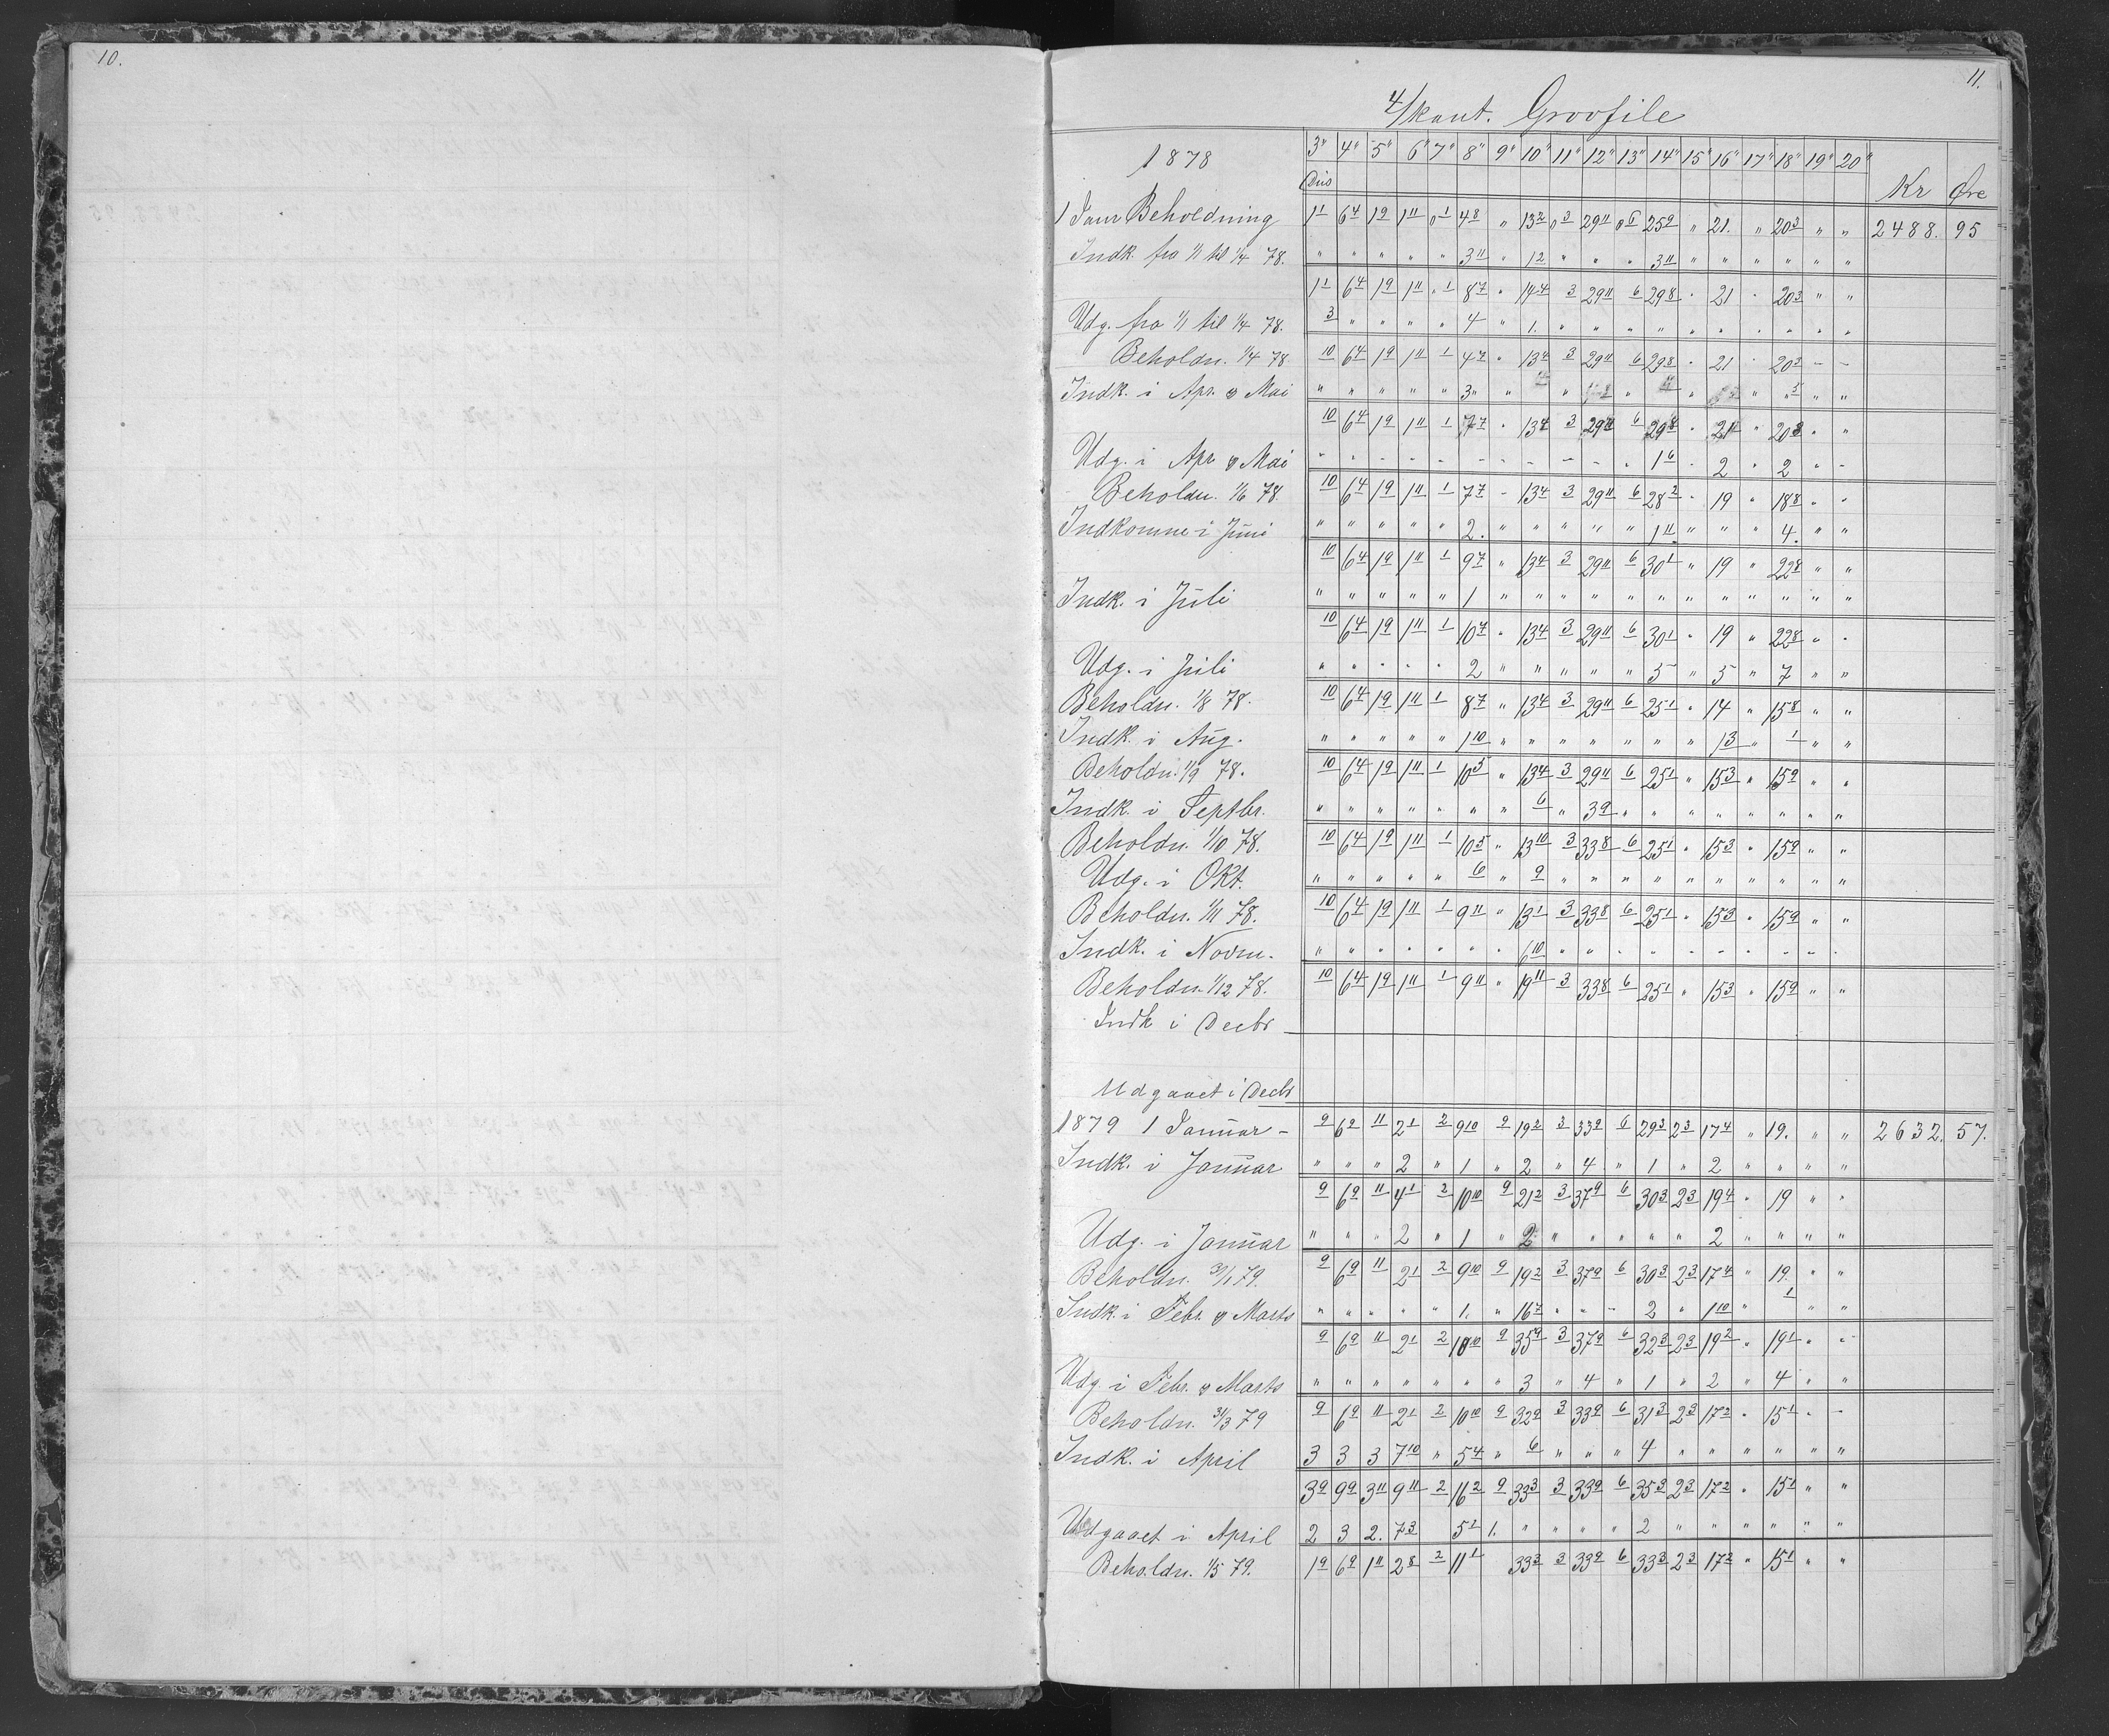 10.
11.
4/kant. Groofile
1878 3" 4" 5" 6" 7" 8" 9" 10" 11" 12" 13" 14" 15" 16" 17" 18" 19" 20" Kr Øre
Dus
1 Janr Beholdning 1 1 6 4 1 9 1 11 0 1 4 8 " 13 2 0 3 29 11 0 6 25 9 " 21. " 20 3 " " 2488. 95
Indk. fra 1/1 til 1/4 78. " " " " " 3 11 " 1 2 " " " 3 11 " " " " " "
1 1 6 4 1 9 1 11 " 1 8 7 " 14 4 3 29 11 6 29 8 " 21 " 20 3 " "
Udg. fra 1/1 til 1/4 78. 3 " " " " 4 " 1. " " " " " " " " " "
Beholdn. 1/4 78. 10 6 4 1 9 1 11 1 4 7 " 13 4 3 29 11 6 29 8 " 21 " 20 3 - -
Indk. i Apr. & Mai " " " " " 3 " " " " " " 5 " "
10 6 4 1 9 1 11 1 7 7 " 13 4 3 29 11 6 29 8 " 21 " 20 8 " "
Udg. i Apr. & Mai " - - - - - - - - - " 1 6 - 2 " 2 " -
Beholdn. 1/6 78. 10 6 4 1 9 1 11 1 7 7 - 13 4 3 29 11 6 28 2 " 19 " 18 8 " "
Indkomne i Juni " " " " " 2. " " " " " 1 11 " " " 4. " "
10 6 4 1 9 1 11 1 9 7 " 13 4 3 29 11 6 30 1 " 19 " 22 8 " "
Indk. i Juli " " " " " 1 " " " " " " " " " " " "
10 6 4 1 9 1 11 1 10 7 " 13 4 3 29 11 6 30 1 " 19 " 22 8 " "
Udg. i Juli " " " " " 2 " " " " " 5 " 5 " 7 " "
Beholdn. 1/8 78. 10 6 4 1 9 1 11 1 8 7 " 13 4 3 29 11 6 25 1 " 14 " 15 8 " "
Indk. i Aug. " " " " " 1 10 " " " " " " " 1 3 " 1 " "
Beholdn. 1/9 78. 10 6 4 1 9 1 11 1 10 5 " 13 4 3 29 11 6 25 1 " 15 3 " 15 9 " "
Indk. i Septbr. " " " " " " " 6 " 3 9 " " " " " " " "
Beholdn. 1/10 78. 10 6 4 1 9 1 11 1 10 5 " 13 10 3 33 8 6 25 1 " 15 3 " 15 9 " "
Udg. i Okt. " " " " " 6 " 9 " " " " " " " " " "
Beholdn. 1/11 78. 10 6 4 1 9 1 11 1 9 11 " 13 1 3 33 8 6 25 1 " 15 3 " 15 9 " "
Indk. i Novm. " " " " " " " 6 10 " " " " - - - - - -
Beholdn. 1/12 78. 10 6 4 1 9 1 11 1 9 11 " 19 11 3 33 8 6 25 1 " 15 3 " 15 9 " "
Indk i Decbr
Udgaaet i Decbr
1879 1 Januar - 9 6 9 11 2 1 2 9 10 9 19 2 3 33 9 6 29 3 2 3 17 4 " 19. " " 2632. 57.
Indk. i Januar " " " 2 " 1 " 2 " 4 " 1 " 2 " " " "
9 6 9 11 4 1 2 10 10 9 21 2 3 37 9 6 30 3 2 3 19 4 " 19 " "
Udg. i Januar " " " 2 " 1 " 2 " " " " " 2 " " " "
Beholdn. 31/1 79. 9 6 9 11 2 1 2 9 10 9 19 2 3 37 9 6 30 3 2 3 17 4 " 19. " "
Indk. i Febr. & Marts " " " " " 1. " 16 7 " " - 2 " 1 10 " 1 " "
9 6 9 11 2 1 2 10 10 9 35 9 3 37 9 6 32 3 2 3 19 2 " 19 1 " "
Udg i Febr. & Marts " " " " " " " 3 " 4 " 1 " 2 " 4 " "
Beholdn. 31/3 79 9 6 9 11 2 1 2 10 10 9 32 9 3 33 9 6 31 3 2 3 17 2 " 15 1 " -
Indk. i April 3 3 3 7 10 " 5 4 " 6 " " " 4 " " " " " "
3 9 9 9 3 11 9 11 2 16 2 9 33 3 3 33 9 6 35 3 2 3 17 2 " 15 1 " "
Udgaaet i April 2 3 2. 7 3 5 1 1. " " " " 2 " " " " " "
Beholdn. 1/5 79. 1 9 6 9 1 11 2 8 2 11 1 33 3 3 33 9 6 33 3 2 3 17 2 " 15 1 " "